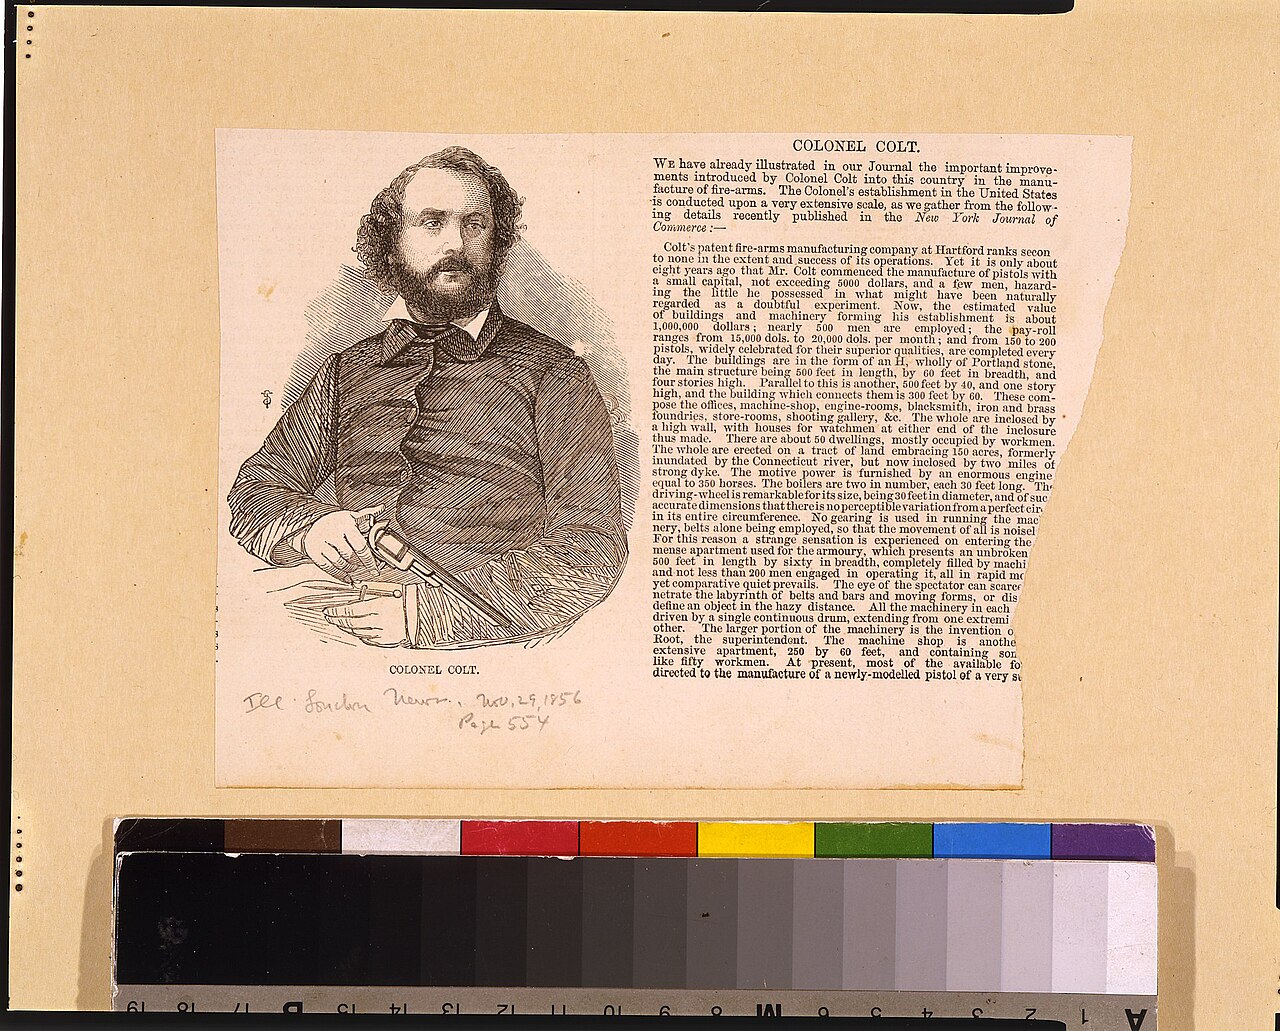 COLONEL COLT.
WE have already illustrated in our Journal the important improve-
ments introduced by Colonel Colt into this country in the manu-
facture of fire-arms. The Colonel's establishment in the United States
is conducted upon a very extensive scale, as we gather from the follow-
ing details recently published in the New York Journal of
Commerce :—
Colt's patent fire-arms manufacturing company at Hartford ranks secon
to none in the extent and success of its operations. Yet it is only about
eight years ago that Mr. Colt commenced the manufacture of pistols with
a small capital, not exceeding 5000 dollars, and a few men, hazard-
ing the little he possessed in what might have been naturally
regarded as a doubtful experiment. Now, the estimated value
of buildings and machinery forming his establishment is about
1,000,000 dollars; nearly 500 men are employed; the pay-roll
ranges from 15,000 dols. to 20,000 dols. per month; and from 150 to 200
pistols, widely celebrated for their superior qualities, are completed every
day. The buildings are in the form of an H, wholly of Portland stone,
the main structure being 500 feet in length, by 60 feet in breadth, and
four stories high. Parallel to this is another, 500 feet by 40, and one story
high, and the building which connects them is 300 feet by 60. These com-
pose the offices, machine-shop, engine-rooms, blacksmith, iron and brass
foundries, store-rooms, shooting gallery, &c. The whole are inclosed by
a high wall, with houses for watchmen at either end of the inclosure
thus made. There are about 50 dwellings, mostly occupied by workmen.
The whole are erected on a tract of land embracing 150 acres, formerly
inundated by the Connecticut river, but now inclosed by two miles of
strong dyke. The motive power is furnished by an enormous engine
equal to 350 horses. The boilers are two in number, each 30 feet long. The
driving-wheel is remarkable for its size, being 30 feet in diameter, and of suc
accurate dimensions that there is no perceptible variation from a perfect cir
in its entire circumference. No gearing is used in running the mac
nery, belts alone being employed, so that the movement of all is noisel
For this reason a strange sensation is experienced on entering the
mense apartment used for the armoury, which presents an unbroken
500 feet in length by sixty in breadth, completely filled by machi
and not less than 200 men engaged in operating it, all in rapid mo
yet comparative quiet prevails. The eye of the spectator can scarce
netrate the labyrinth of belts and bars and moving forms, or dis
define an object in the hazy distance. All the machinery in each
driven by a single continuous drum, extending from one extremi
other. The larger portion of the machinery is the invention o
Root, the superintendent. The machine shop is anothe
extensive apartment, 250 by 60 feet, and containing som
like fifty workmen. At present, most of the available fo
directed to the manufacture of a newly-modelled pistol of a very su
COLONEL COLT.
Ill. London News., Nov. 29, 1856
Page 554
19 18 17 B 15 14 13 12 11 10 9 8 M 6 5 4 3 2 1 A